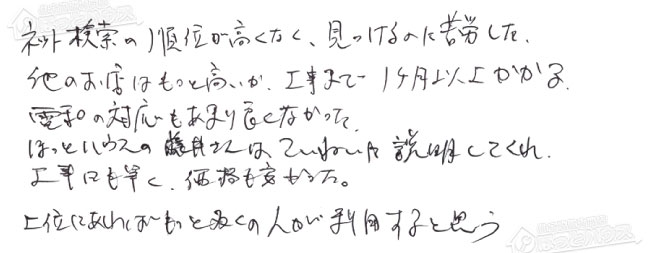 ネット検索の順位が高くなく、見つけるのに苦労した。
他のお店はもっと高いか、工事まで1ヶ月以上かかる。
電話の対応もあまり良くなかった。
ほっとハウスの藤井さんは、ていねいに説明してくれ、
工事日も早く、価格も安かった。
上位にあればもっと多くの人が利用すると思う